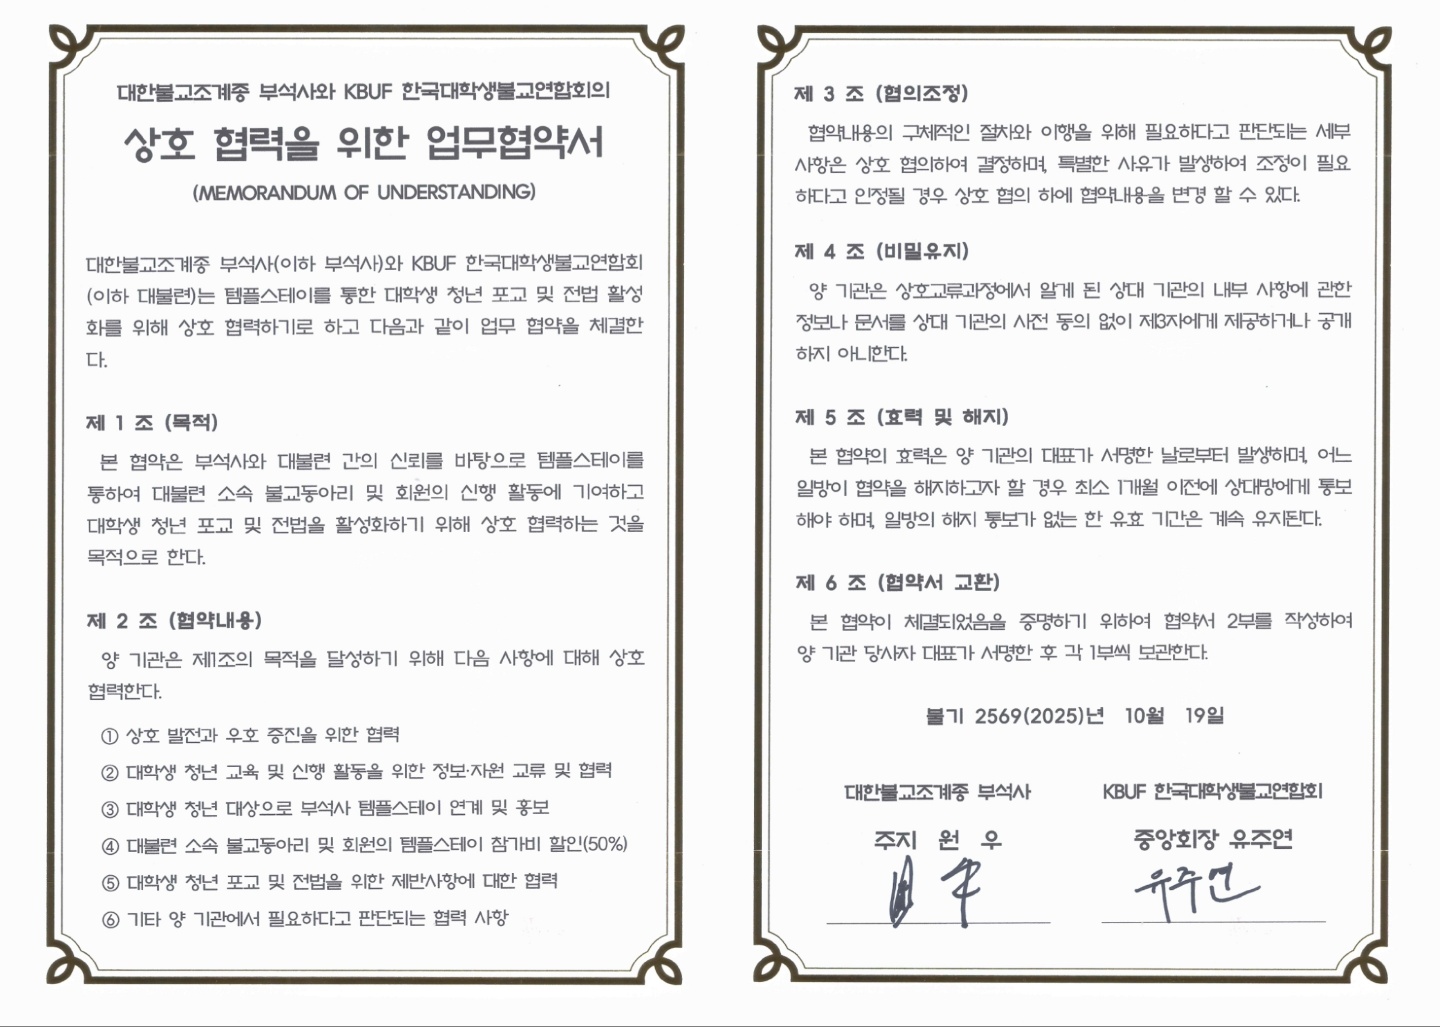 대한불교조계종 부석사와 KBUF 한국대학생불교연합회의
상호 협력을 위한 업무협약서
(MEMORANDUM OF UNDERSTANDING)
대한불교조계종 부석사(이하 부석사)와 KBUF 한국대학생불교연합회
(이하 대불련)는 템플스테이를 통한 대학생 청년 포교 및 전법 활성
화를 위해 상호 협력하기로 하고 다음과 같이 업무 협약을 체결한
다.
제 1 조 (목적)
본 협약은 부석사와 대불련 간의 신뢰를 바탕으로 템플스테이를
통하여 대불련 소속 불교동아리 및 회원의 신행 활동에 기여하고
대학생 청년 포교 및 전법을 활성화하기 위해 상호 협력하는 것을
목적으로 한다.
제 2 조 (협약내용)
양 기관은 제1조의 목적을 달성하기 위해 다음 사항에 대해 상호
협력한다.
① 상호 발전과 우호 증진을 위한 협력
② 대학생 청년 교육 및 신행 활동을 위한 정보·자원 교류 및 협력
③ 대학생 청년 대상으로 부석사 템플스테이 연계 및 홍보
④ 대불련 소속 불교동아리 및 회원의 템플스테이 참가비 할인(50%)
⑤ 대학생 청년 포교 및 전법을 위한 제반사항에 대한 협력
⑥ 기타 양 기관에서 필요하다고 판단되는 협력 사항
제 3 조 (협의조정)
협약내용의 구체적인 절차와 이행을 위해 필요하다고 판단되는 세부
사항은 상호 협의하여 결정하며, 특별한 사유가 발생하여 조정이 필요
하다고 인정될 경우 상호 협의 하에 협약내용을 변경 할 수 있다.
제 4 조 (비밀유지)
양 기관은 상호교류과정에서 알게 된 상대 기관의 내부 사항에 관한
정보나 문서를 상대 기관의 사전 동의 없이 제3자에게 제공하거나 공개
하지 아니한다.
제 5 조 (효력 및 해지)
본 협약의 효력은 양 기관의 대표가 서명한 날로부터 발생하며, 어느
일방이 협약을 해지하고자 할 경우 최소 1개월 이전에 상대방에게 통보
해야 하며, 일방의 해지 통보가 없는 한 유효 기간은 계속 유지된다.
제 6 조 (협약서 교환)
본 협약이 체결되었음을 증명하기 위하여 협약서 2부를 작성하여
양 기관 당사자 대표가 서명한 후 각 1부씩 보관한다.
불기 2569(2025)년 10월 19일
대한불교조계종 부석사 KBUF 한국대학생불교연합회
주지 원 우 중앙회장 유주연
유주연